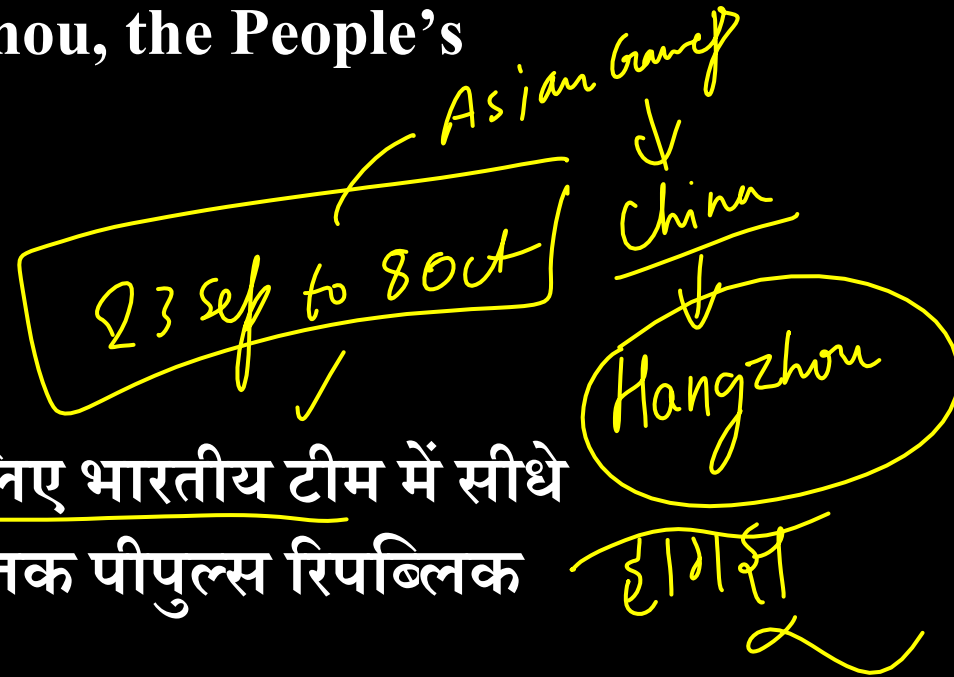 hou, the People's
Asian Games
China
23 Sep to 8 Oct
Hangzhou
लिए भारतीय टीम में सीधे
तक पीपुल्स रिपब्लिक